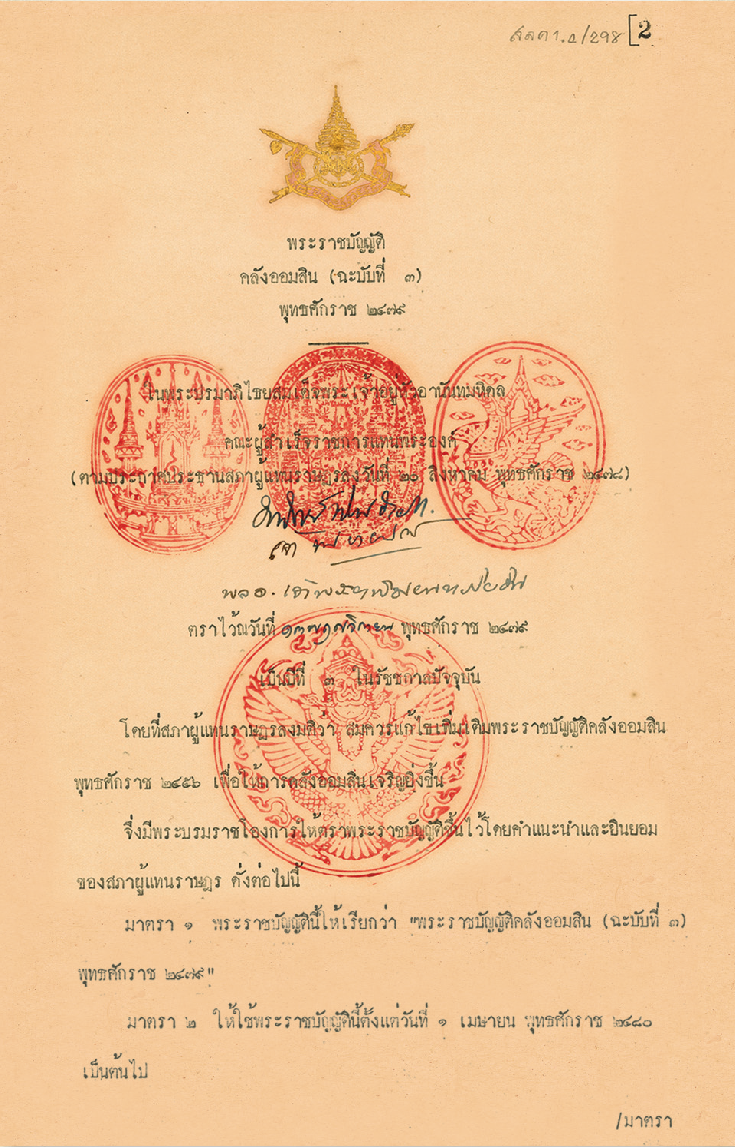 สลค ๑.๔/298 [2
พระราชบัญญัติ
คลังออมสิน (ฉะบับที่ ๓)
พุทธศักราช ๒๔๗๙
ในพระปรมาภิไธยสมเด็จพระเจ้าอยู่หัวอานันทมหิดล
คณะผู้สำเร็จราชการแทนพระองค์
(ตามประกาศประธานสภาผู้แทนราษฎรลงวันที่ ๒๐ สิงหาคม พุทธศักราช ๒๔๗๘)
ตราไว้ณวันที่ พุทธศักราช ๒๔๗๙
เป็นปีที่ ๓ ในรัชชกาลปัจจุบัน
โดยที่สภาผู้แทนราษฎรลงมติว่า สมควรแก้ไขเพิ่มเติมพระราชบัญญัติคลังออมสิน
พุทธศักราช ๒๔๕๖ เพื่อให้การคลังออมสินเจริญยิ่งขึ้น
จึ่งมีพระบรมราชโองการให้ตราพระราชบัญญัติขึ้นไว้โดยคำแนะนำและยินยอม
ของสภาผู้แทนราษฎร ดั่งต่อไปนี้
มาตรา ๑ พระราชบัญญัตินี้ให้เรียกว่า "พระราชบัญญัติคลังออมสิน (ฉะบับที่ ๓)
พุทธศักราช ๒๔๗๙"
มาตรา ๒ ให้ใช้พระราชบัญญัตินี้ตั้งแต่วันที่ ๑ เมษายน พุทธศักราช ๒๔๘๐
เป็นต้นไป
/มาตรา